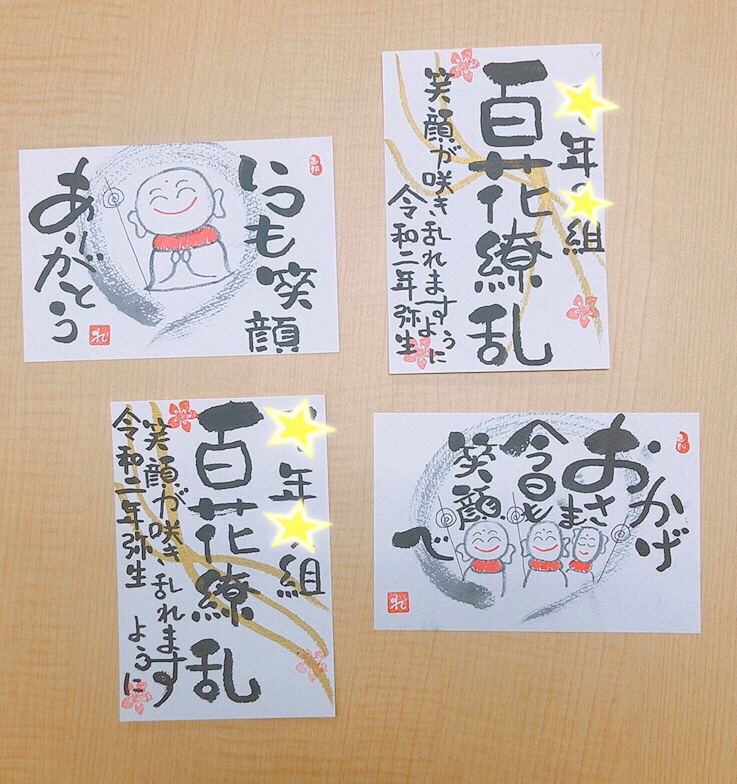 いつも笑顔
ありがとう
年 組
百花繚乱
笑顔が咲き乱れますように
令和二年弥生
年 組
百花繚乱
笑顔が咲き乱れます
ように
令和二年弥生
おかげ
さま
今日も
笑顔
で